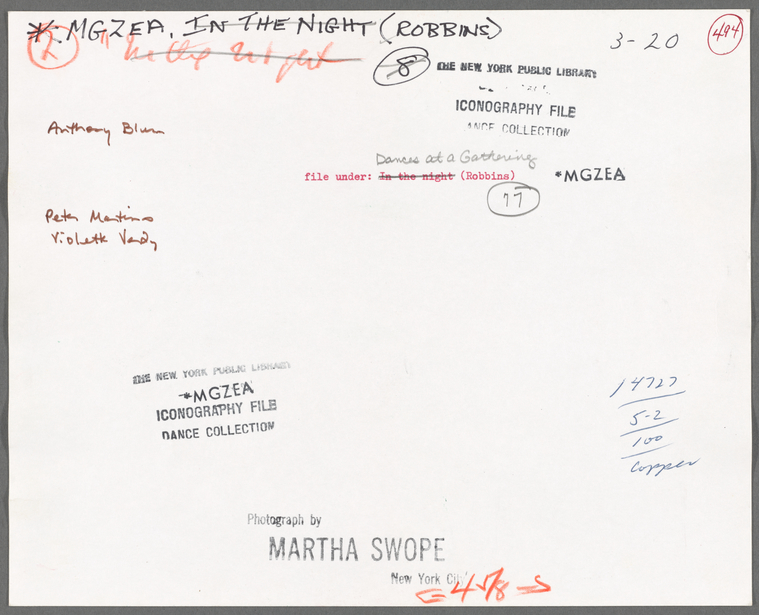 *MGZEA, IN THE NIGHT (ROBBINS)
3-20
494
2 "In the Night
8
THE NEW YORK PUBLIC LIBRARY
ICONOGRAPHY FILE
DANCE COLLECTION
Anthony Blum
Dances at a Gathering
file under: In the night (Robbins) *MGZEA
77
Peter Martins
Violette Verdy
THE NEW YORK PUBLIC LIBRARY
*MGZEA
ICONOGRAPHY FILE
DANCE COLLECTION
14727
5-2
100
copper
Photograph by
MARTHA SWOPE
New York City